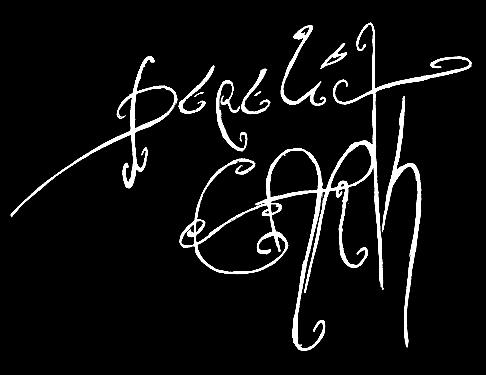 Derelict
Earth